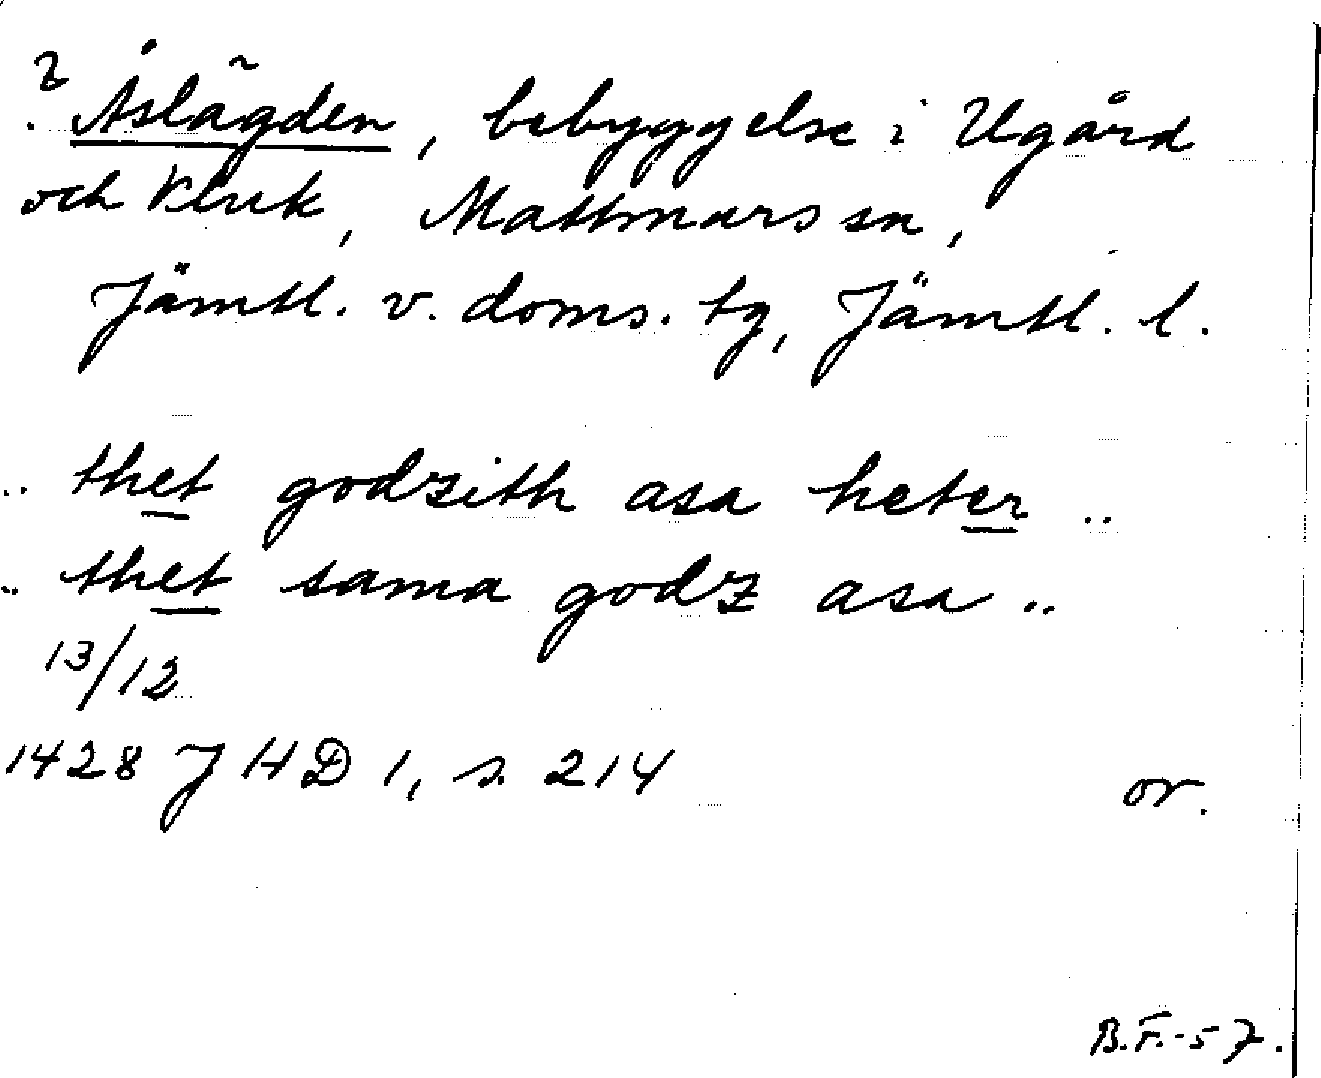 ? Åslägden, bebyggelse i Ugård
och Kluk, Mattmars sn,
Jämtl. v. doms. tg, Jämtl. l.
.. thet godzith asa heter ..
.. thet sama godz asa ..
13/12
1428 JHD 1, s. 214 or.
B.F.-57.